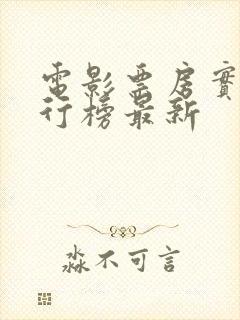 電影票房實
行榜最新
淼不可言